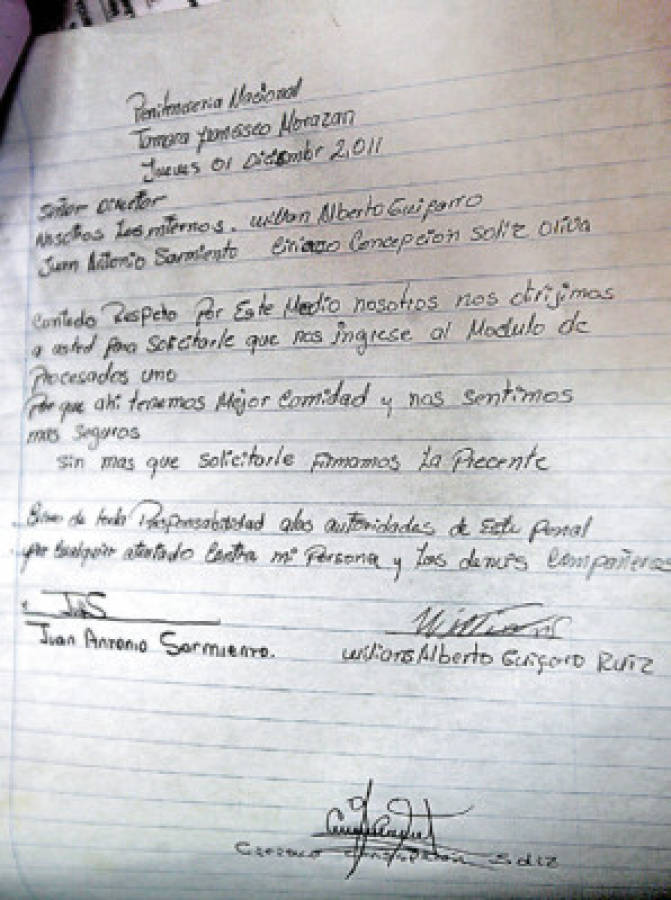 Penitenceria Nacional
Tamara francisco Morazan
Jueves 01 Diciembr 2,011
Señor Director
Nosotros Los internos. willian Alberto Guiparro
Juan Antonio Sarmiento Ciriaco Concepcion soliz oliva
Contodo Respeto Por Este Medio nosotros nos dirijimos
a usted para Solicitarle que nos ingrese al Modulo de
Procesados uno
Por que ahi tenemos Mejor Comidad y nos sentimos
mas seguros
sin mas que solicitarle firmamos La Precente
de toda Responsabilidad alas autoridades de Este Penal
por Cualquier atentado Contra mi Persona y Los demás Compañeros
JAS
Juan Antonio Sarmiento.
Willians Alberto Guigaro Ruiz
Concepcion Soliz